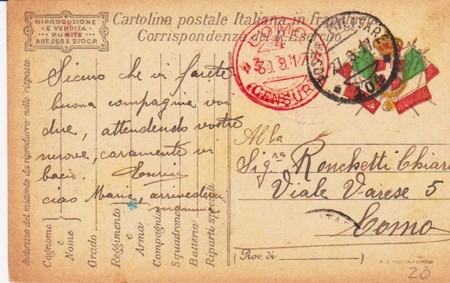 RIPRODUZIONE
E VENDITA
PUNITE
ART. 285 E 270 C.P.
Cartolina postale Italiana in fra
Corrispondenza del R. Esercito
COMO
30. 8. 17
CENSUR
MILITARE
27. 8. 17
Sicuro che vi farete
buona compagnia voi
due, attendendo vostre
nuove, caramente vi
baci. Enrico
ciao Maria, arrivederci
mamma
Alla
Sig.ra Ronchetti Chiar
Viale Varese 5
Como
(Prov. di
)
20
Indirizzo del mittente da riprodurre nelle risposte
Cognome
e
Nome
Grado
Reggimento
e
Arma
Compagnia
Squadrone
Batteria
Riparti speciali